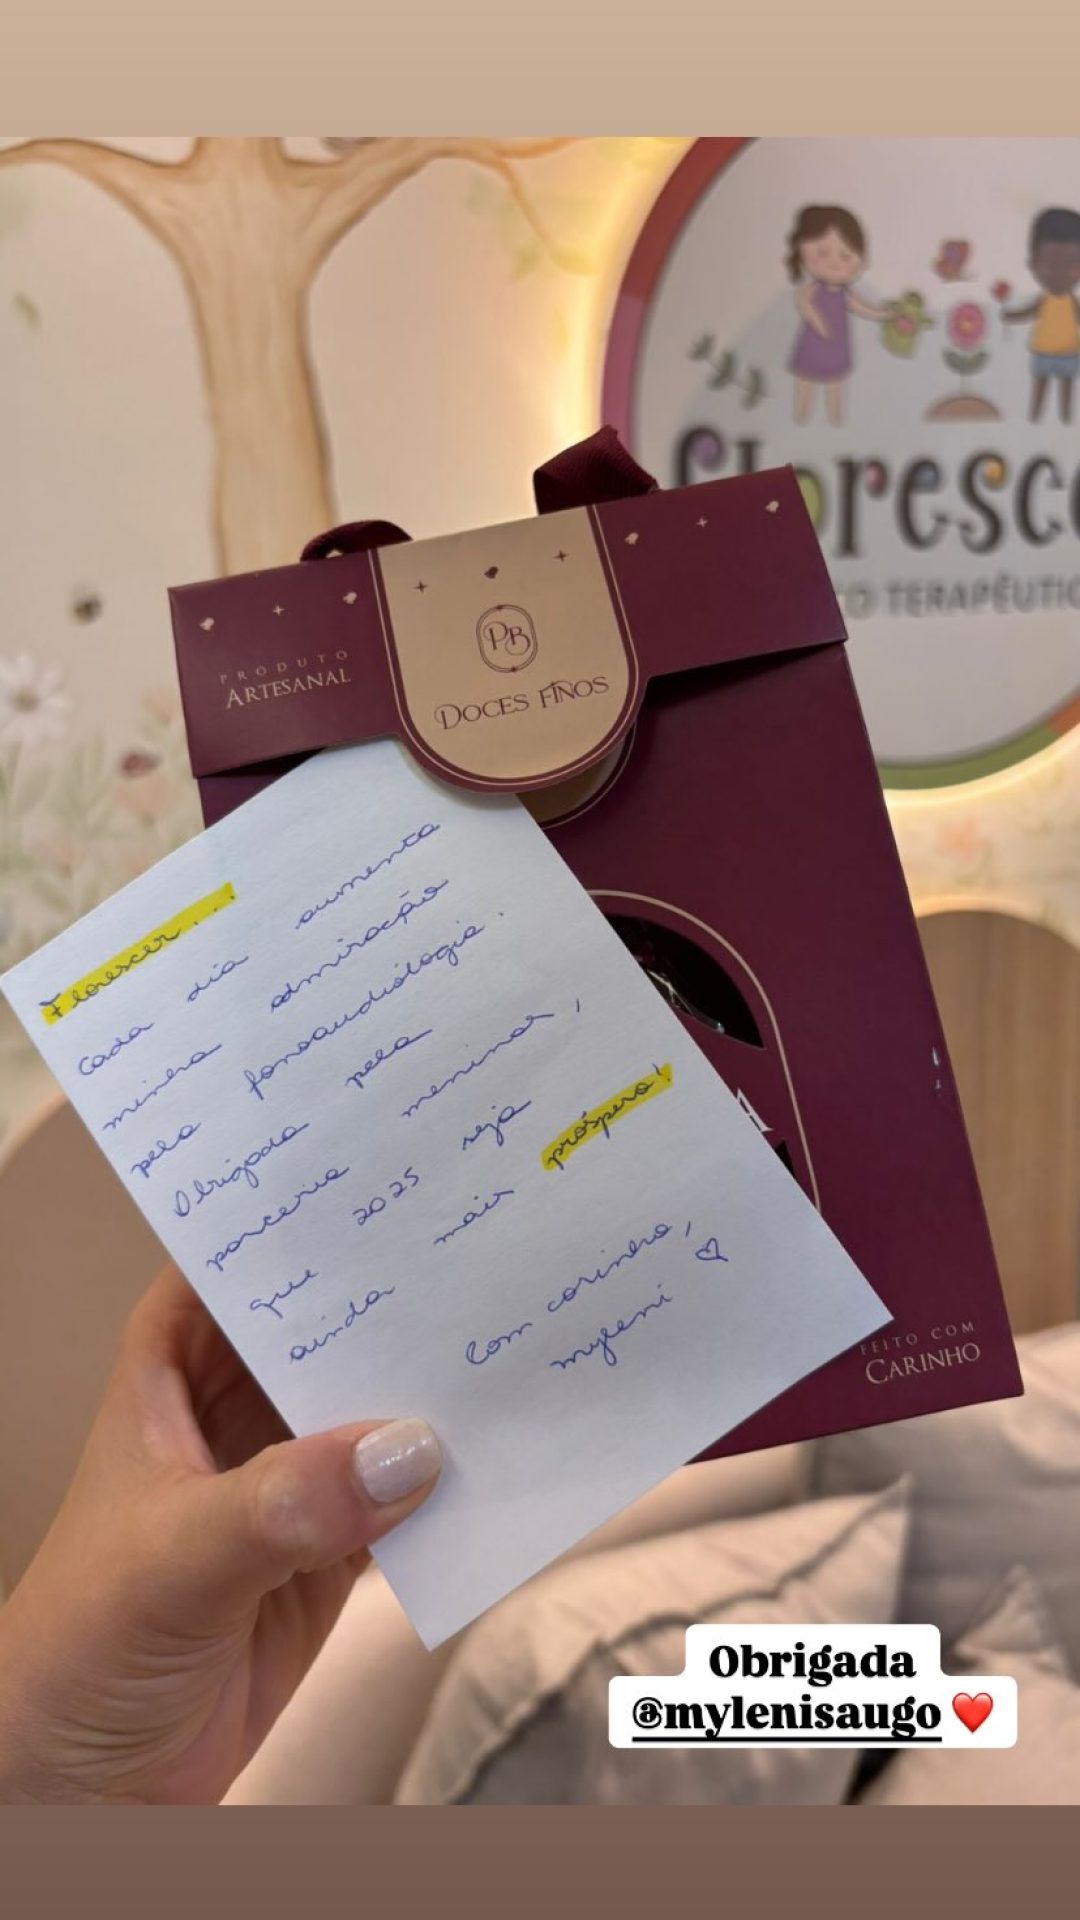 Floresce
CO TERAPÊUTIC
PRODUTO
ARTESANAL
PB
DOCES FINOS
Florescer...
Cada dia aumenta
minha admiração
pela fonoaudiologia.
Obrigada pela
parceria meninas,
que 2025 seja
ainda mais próspero!
Com carinho,
Myleni ♡
A
FEITO COM
CARINHO
Obrigada
@mylenisaugo ❤️